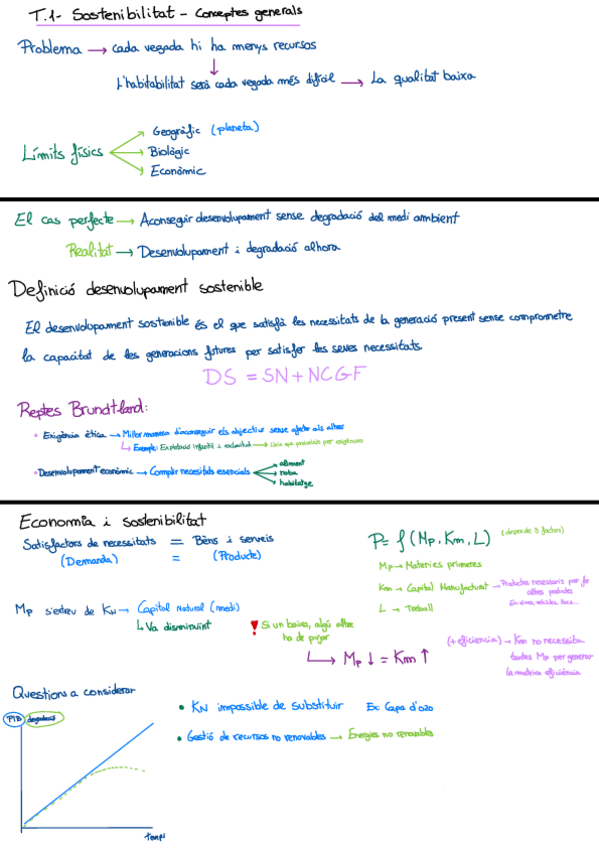 T.1- Sostenibilitat - Conceptes generals
Problema → cada vegada hi ha menys recursos
↓
L'habitabilitat serà cada vegada més difícil → La qualitat baixa
Geogràfic (planeta)
Límits físics → Biològic
Econòmic
El cas perfecte → Aconseguir desenvolupament sense degradació del medi ambient
Realitat → Desenvolupament i degradació alhora
Definició desenvolupament sostenible
El desenvolupament sostenible és el que satisfà les necessitats de la generació present sense comprometre
la capacitat de les generacions futures per satisfer les seves necessitats.
DS = SN + NCGF
Reptes Brundtland:
• Exigència ètica → Millor manera d'aconseguir els objectius sense afectar als altres
↳ Exemple: Explotació infantil i esclavitud →
• Desenvolupament econòmic → Complir necesitats esencials → aliment
roba
habitatge
Economia i sostenibilitat
Satisfactors de necessitats = Béns i serveis
(Demanda) = (Producte)
P = f (Mp, Km, L) (depen de 3 factors)
Mp → Materies primeres
Km → Capital Manufacturat → Productes necessaris per fer
altres productes
Ex: eines, vehicles, llocs...
L → Treball
Mp s'extreu de KN → Capital Natural (medi)
↳ Va disminuint
! Si un baixa, algú altre
ha de pujar
↳ Mp ↓ = Km ↑
(+ eficiencia) → Km no necessita
tantes Mp per generar
la mateixa eficiència
Questions a considerar
PIB degradació
temps
• KN impossible de substituir Ex: Capa d'ozó
• Gestió de recursos no renovables → Energies no renovables